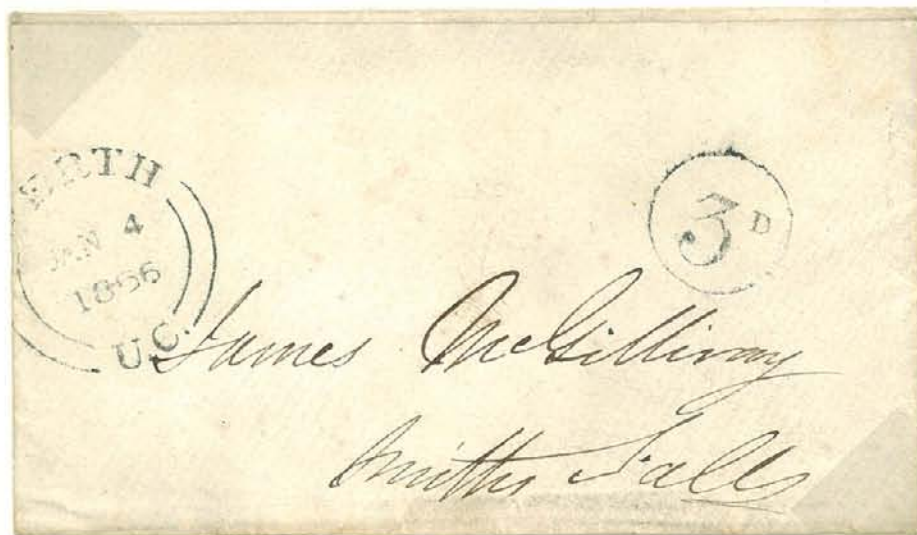 ERTH
JAN 4
1856
U.C.
3D
James McGillivray
Smiths Falls